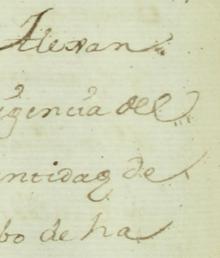 Alexan
igencia del
entidad de
bo de ha